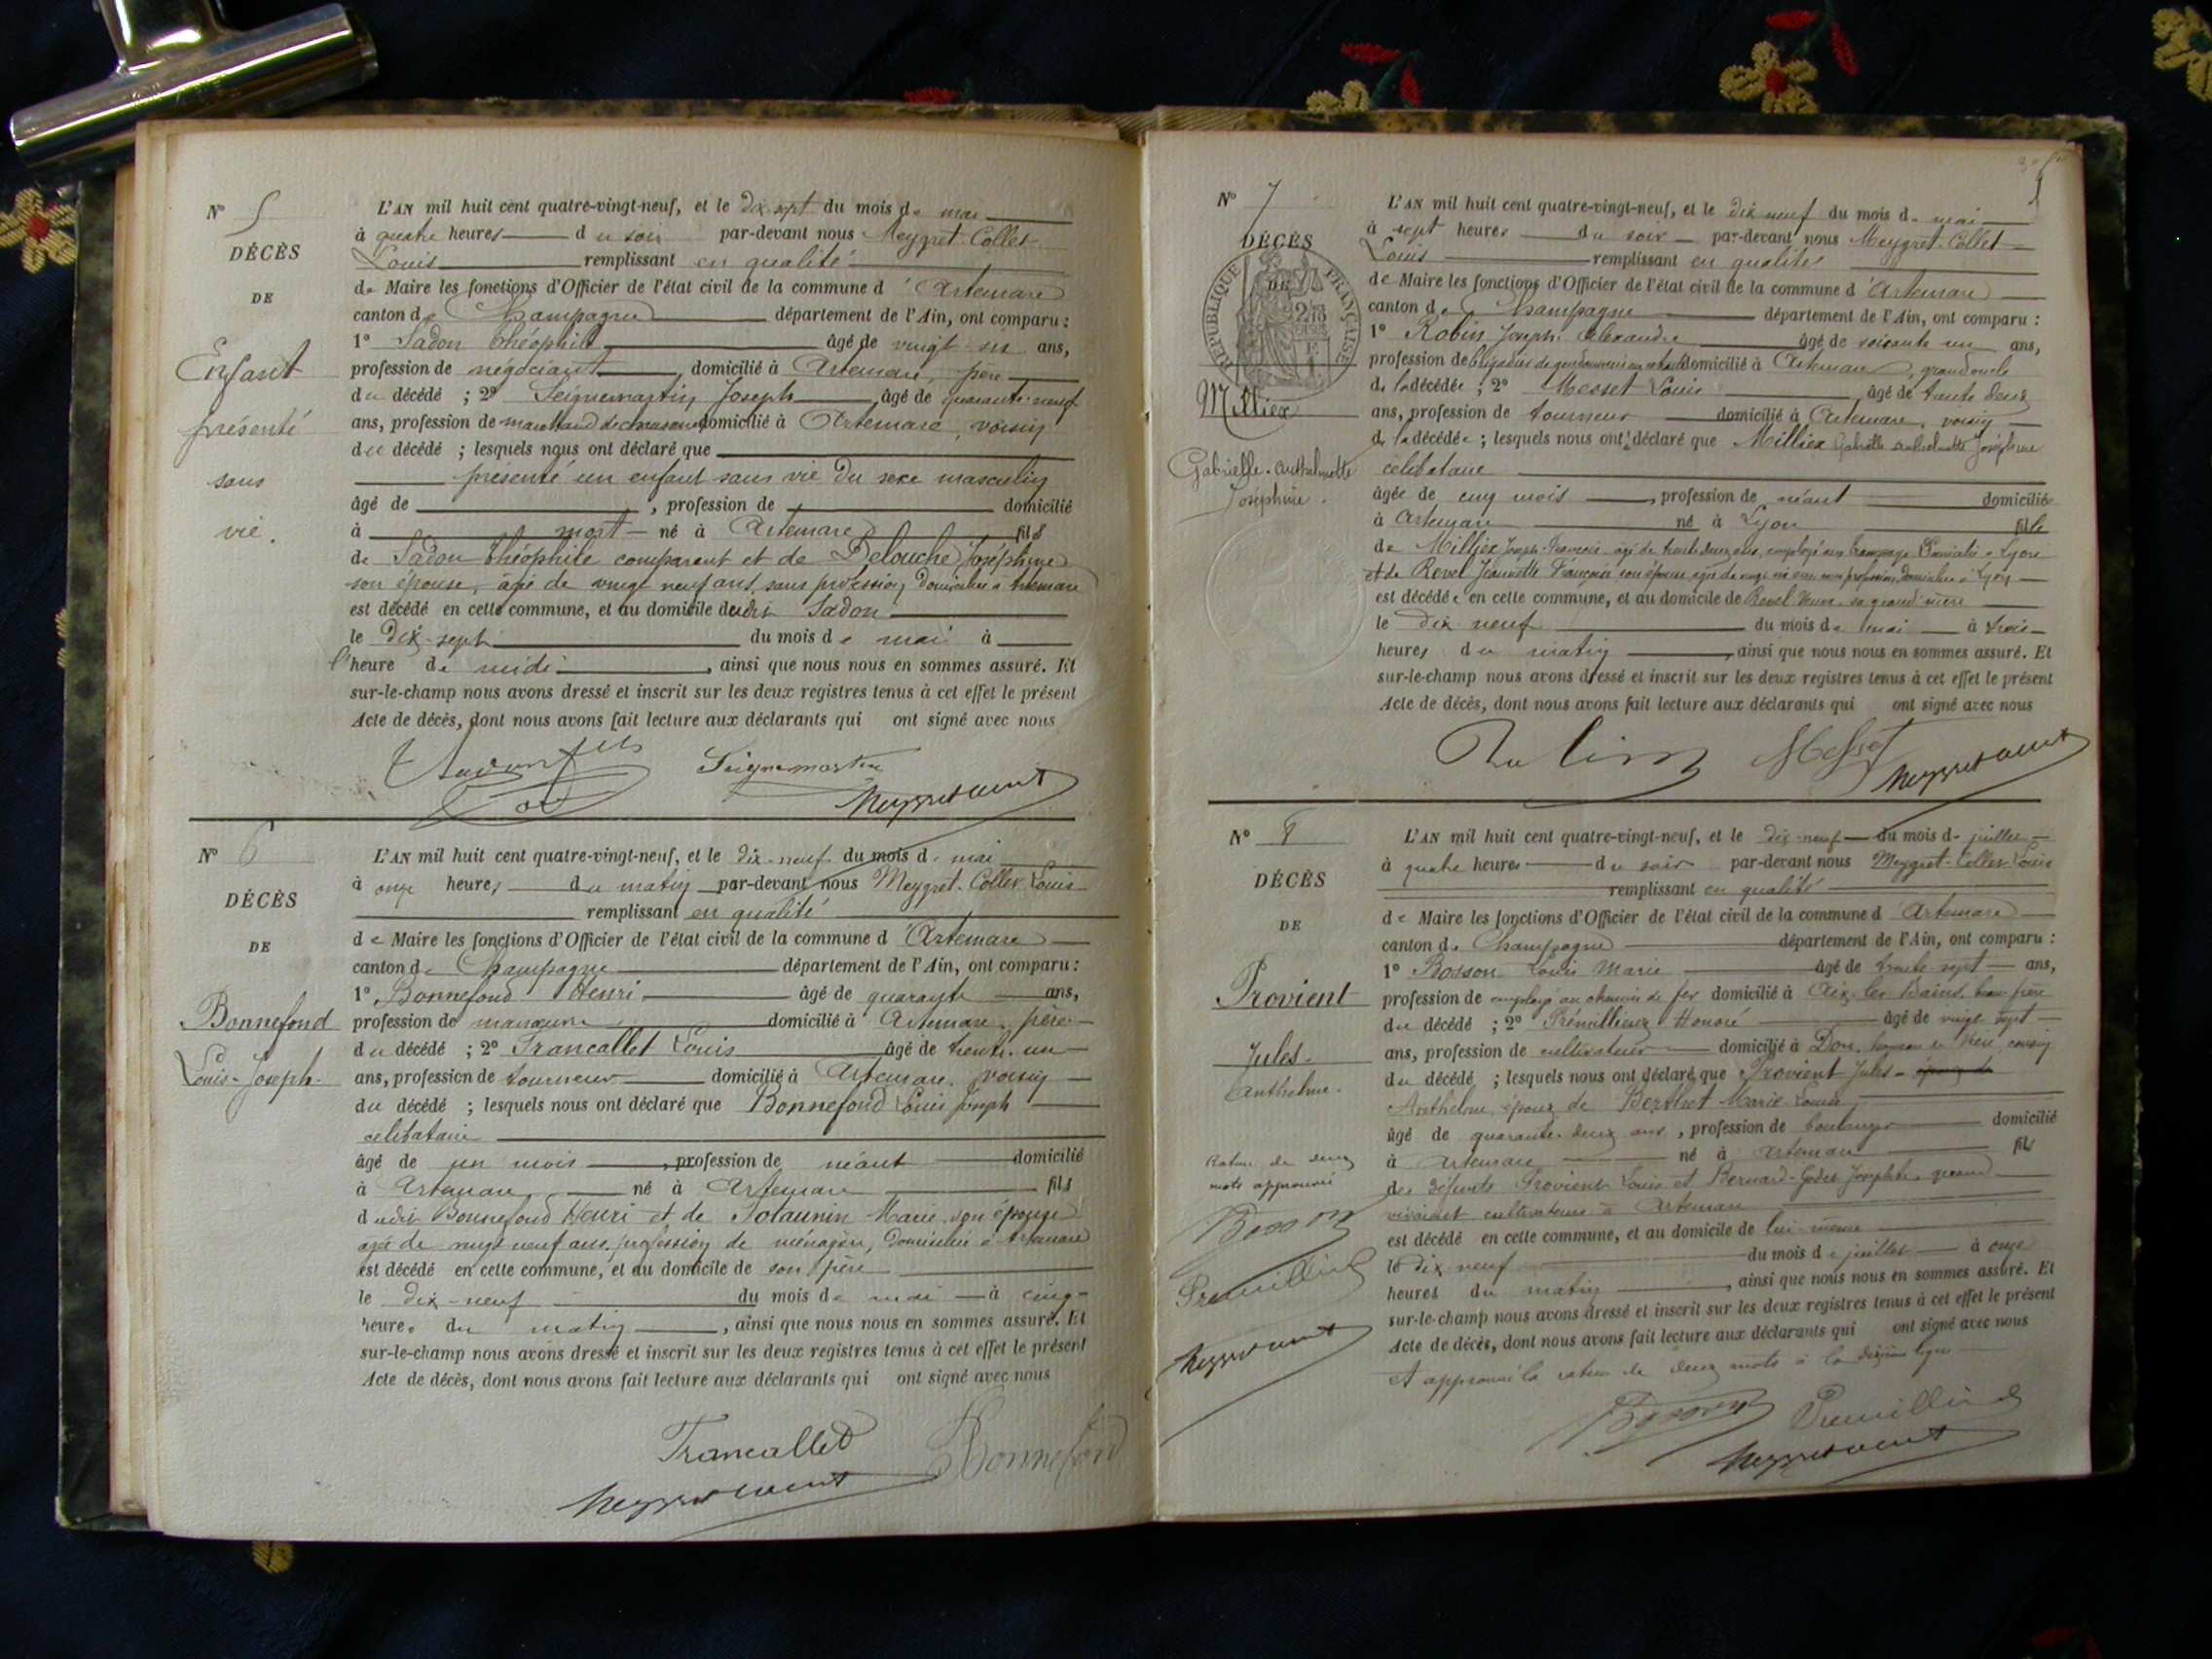 N° 5
DÉCÈS
DE
Enfant
présenté
sans
vie.
L'AN mil huit cent quatre-vingt-neuf, et le dix-sept du mois de mai
à quatre heures du soir par-devant nous Meygret-Collet
Louis remplissant en qualité
de Maire les fonctions d'Officier de l'état civil de la commune d'Artemare
canton de Champagne département de l'Ain, ont comparu :
1° Sadon Théophile âgé de vingt six ans,
profession de négociant, domicilié à Artemare, père
du décédé ; 2° Seignemartin Joseph âgé de quarante-neuf
ans, profession de marchand de domicilié à Artemare, voisin
du décédé ; lesquels nous ont déclaré que
présenté un enfant sans vie du sexe masculin
âgé de , profession de domicilié
à mort né à Artemare fils
de Sadon Théophile comparant et de Delouche Joséphine
son épouse, âgée de vingt neuf ans, sans profession, domiciliée à Artemare
est décédé en cette commune, et au domicile dudit Sadon
le dix-sept du mois de mai à
l'heure de midi, ainsi que nous nous en sommes assuré. Et
sur-le-champ nous avons dressé et inscrit sur les deux registres tenus à cet effet le présent
Acte de décès, dont nous avons fait lecture aux déclarants qui ont signé avec nous
Sadon fils Seignemartin
N° 6
DÉCÈS
DE
Bonnefond
Louis-Joseph.
L'AN mil huit cent quatre-vingt-neuf, et le dix-neuf du mois de mai
à onze heures du matin par-devant nous Meygret-Collet Louis
remplissant en qualité
de Maire les fonctions d'Officier de l'état civil de la commune d'Artemare
canton de Champagne département de l'Ain, ont comparu :
1° Bonnefond Henri âgé de quarante ans,
profession de manœuvre domicilié à Artemare, père
du décédé ; 2° Francallet Louis âgé de trente-un
ans, profession de tourneur domicilié à Artemare, voisin
du décédé ; lesquels nous ont déclaré que Bonnefond Louis Joseph
célibataire
âgé de un mois, profession de néant domicilié
à Artemare né à Artemare fils
dudit Bonnefond Henri et de Marie son épouse
agée de vingt neuf ans, profession de ménagère, domiciliée à Artemare
est décédé en cette commune, et au domicile de son père
le dix-neuf du mois de mai à cinq
heures du matin, ainsi que nous nous en sommes assuré. Et
sur-le-champ nous avons dressé et inscrit sur les deux registres tenus à cet effet le présent
Acte de décès, dont nous avons fait lecture aux déclarants qui ont signé avec nous
Francallet Bonnefond
N° 7
DÉCÈS
DE
RÉPUBLIQUE FRANÇAISE
Milliex
Gabrielle-Anthelmette
Joséphine.
L'AN mil huit cent quatre-vingt-neuf, et le dix neuf du mois de mai
à sept heures du soir par-devant nous Meygret-Collet
Louis remplissant en qualité
de Maire les fonctions d'Officier de l'état civil de la commune d'Artemare
canton de Champagne département de l'Ain, ont comparu :
1° Robin Joseph Alexandre âgé de soixante un ans,
profession de brigadier de gendarmerie en retraite domicilié à Artemare, grand oncle
de la décédée ; 2° Messet Louis âgé de trente deux
ans, profession de tourneur domicilié à Artemare, voisin
de la décédée ; lesquels nous ont déclaré que Milliex Gabrielle Anthelmette Joséphine
célibataire
âgée de cinq mois, profession de néant domiciliée
à Artemare né à Lyon fille
de Milliex Joseph François âgé de trente deux ans, employé aux domicilié à Lyon
et de Revel Jeannette Françoise son épouse agée de vingt six ans sans profession, domiciliée à Lyon
est décédée en cette commune, et au domicile de Revel Veuve sa grand'mère
le dix neuf du mois de mai à trois
heures du matin, ainsi que nous nous en sommes assuré. Et
sur-le-champ nous avons dressé et inscrit sur les deux registres tenus à cet effet le présent
Acte de décès, dont nous avons fait lecture aux déclarants qui ont signé avec nous
Robin Messet
N° 8
DÉCÈS
DE
Provient
Jules-
Anthelme.
Rature de deux
mots approuvée
Bosson
L'AN mil huit cent quatre-vingt-neuf, et le dix-neuf du mois de juillet
à quatre heures du soir par-devant nous Meygret-Collet Louis
remplissant en qualité
de Maire les fonctions d'Officier de l'état civil de la commune d'Artemare
canton de Champagne département de l'Ain, ont comparu :
1° Bosson Louis Marie âgé de trente-sept ans,
profession de employé au chemin de fer domicilié à Aix-les-Bains, beau frère
du décédé ; 2° Prémillieux Honoré âgé de vingt sept
ans, profession de cultivateur domicilié à Don, hameau de cousin
du décédé ; lesquels nous ont déclaré que Provient Jules- époux de
Anthelme, époux de Berthet Marie Louise
âgé de quarante-deux ans, profession de boulanger domicilié
à Artemare né à Artemare fils
des défunts Provient Louis et Bernard-Godet Josephte, quand
vivaient cultivateurs à Artemare
est décédé en cette commune, et au domicile de lui-même
le dix-neuf du mois de juillet à onze
heures du matin, ainsi que nous nous en sommes assuré. Et
sur-le-champ nous avons dressé et inscrit sur les deux registres tenus à cet effet le présent
Acte de décès, dont nous avons fait lecture aux déclarants qui ont signé avec nous
et approuvé la rature de deux mots à la dixième ligne
Bosson